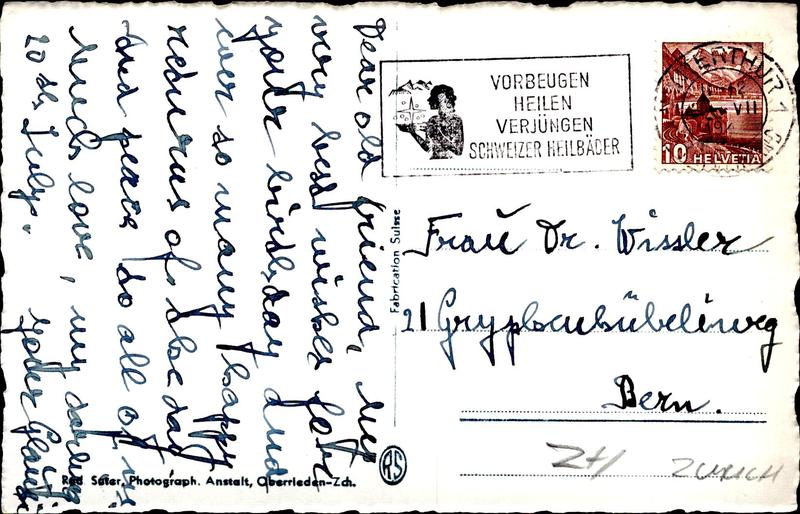 Dear old friend, my
very best wishes for
your birthday and
ever so many happy
returns of the day
and peace to all of us
Much love, my darling
20th July. Your
VORBEUGEN
HEILEN
VERJÜNGEN
SCHWEIZER HEILBÄDER
WINTERTHUR 1
VII
10 HELVETIA
Fabrication Suisse
Frau Dr. Wissler
21 Gryphenhübeliweg
Bern.
RS
Rud. Suter, Photograph. Anstalt, Oberrieden-Zch.
ZH ZURICH